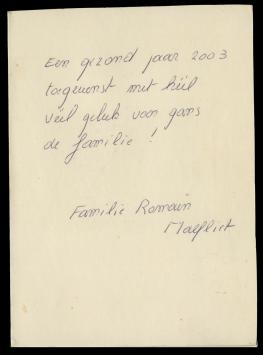 Een gezond jaar 2003
toegewenst met héél
véél geluk voor gans
de familie !
Familie Romain
Malfliet